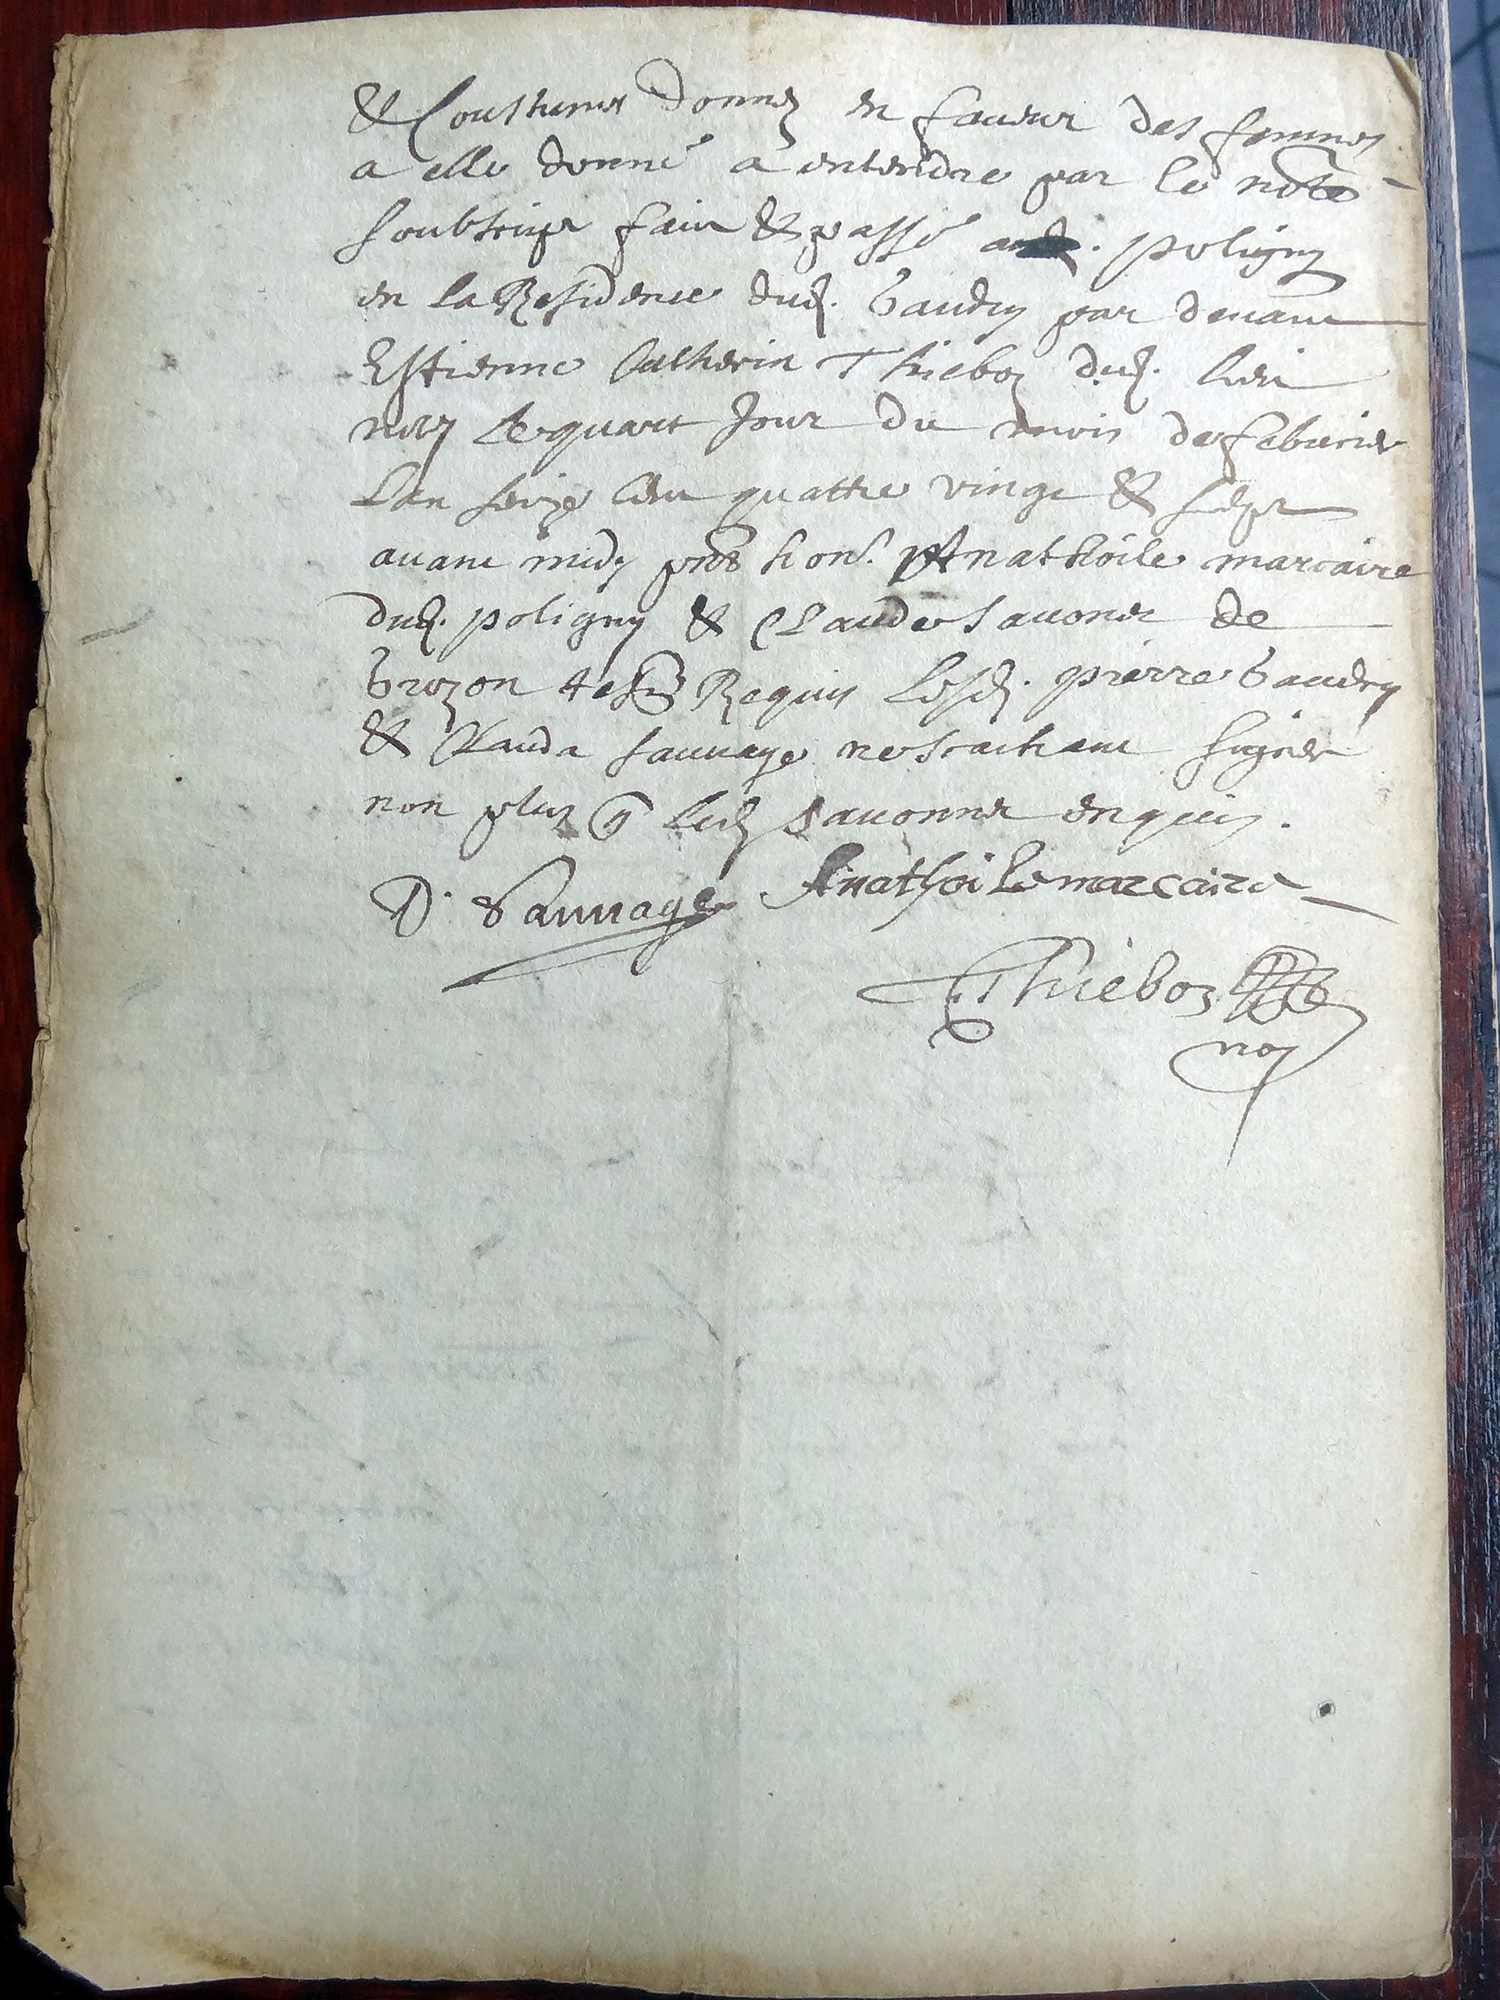 & Coustumes donnez en faueur des femmes
a elle donné a entendre par le notre
soubsigné fait & passé aud. poligny
en la Residence dud. Gaudry par deuant
Estienne Catherin Thieboz dud. lieu
nore le quart Jour du mois de febvrier
Lan seize cent quattre vingt & sept
auant midy pns hon. Anathoile marcaire
dud. poligny & Claude Sauonet de
Grozon tesms Requis Lesd. pierre Gaudry
& Clauda sauuage ne scachant signer
non plus q led Sauonnet enquis.
D. Sauuage Anathoile marcaire
Thieboz
nore